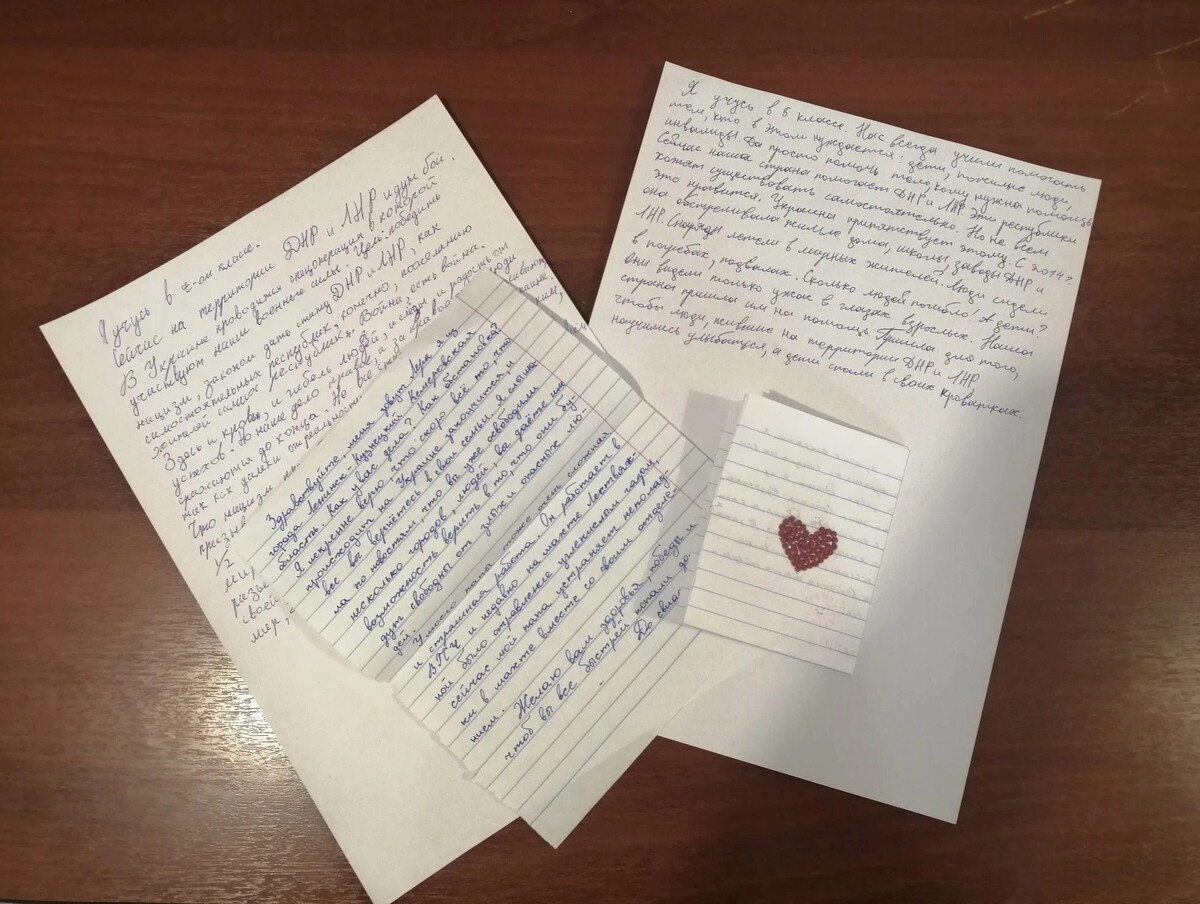 Я учусь в 7-ом класе.
Сейчас на территории ДНР и ЛНР идут бои.
В Украине проводится спецоперация в которой
участвуют наши военные силы. Цель: победить
нацизм, законом дать стату ДНР и ЛНР, как
самостоятельных республик, конечно, пожеланию
жителей самих республик. Война есть война.
Здесь и кровь, и гибель людей, и слёзы и радость от
успехов. Но наше дело правое и за правое люди
сражаются до конца. Не все
так как далеки от реальности.
Что нацизм
призна
1/2
мир,
Здравствуйте, меня зовут Лера я из
города Ленинск-Кузнецкий Кемеровская
область. Как у вас дела? Как обстановка?
Я искренне верю что скоро всё то, что
происходит на Украине закончится, и
все вы вернётесь в свои семьи. Я слыша-
ла по новостям что вы уже освободили
несколько городов, людей, вы даёте им
возможность верить в то, что они бу-
дут свободны от злых и опасных лю-
дей.
У моего папы тоже очень сложная
и страшная работа. Он работает в
ВГСЧ и недавно на шахте Листвяж-
ной было отравление углекислым газом,
сейчас мой папа устраняет неполад-
ки в шахте вместе со своим отделе-
нием.
Желаю вам здоровья, победы и
чтоб вы все быстрей попали до
До свида
Я учусь в 5 классе. Нас всегда учили помогать
тем, кто в этом нуждается: дети, пожилые люди,
инвалиды. Да просто помочь тем, кому нужна помощь.
Сейчас наша страна помогает ДНР и ЛНР. Эти республики
хотят существовать самостоятельно. Но не всем
это нравится. Украина припятствует этому. С 2014 г.
она обстреливала жилые дома, школы, заводы ДНР и
ЛНР. Снаряды летели в мирных жителей. Люди сидели
в погребах, подвалах. Сколько людей погибло! А дети?
Они видели только ужас в глазах взрослых. Наша
страна пришла им на помощь. Пришла для того,
чтобы люди, живущие на территории ДНР и ЛНР,
научились улыбаться, а дети спали в своих кроватках